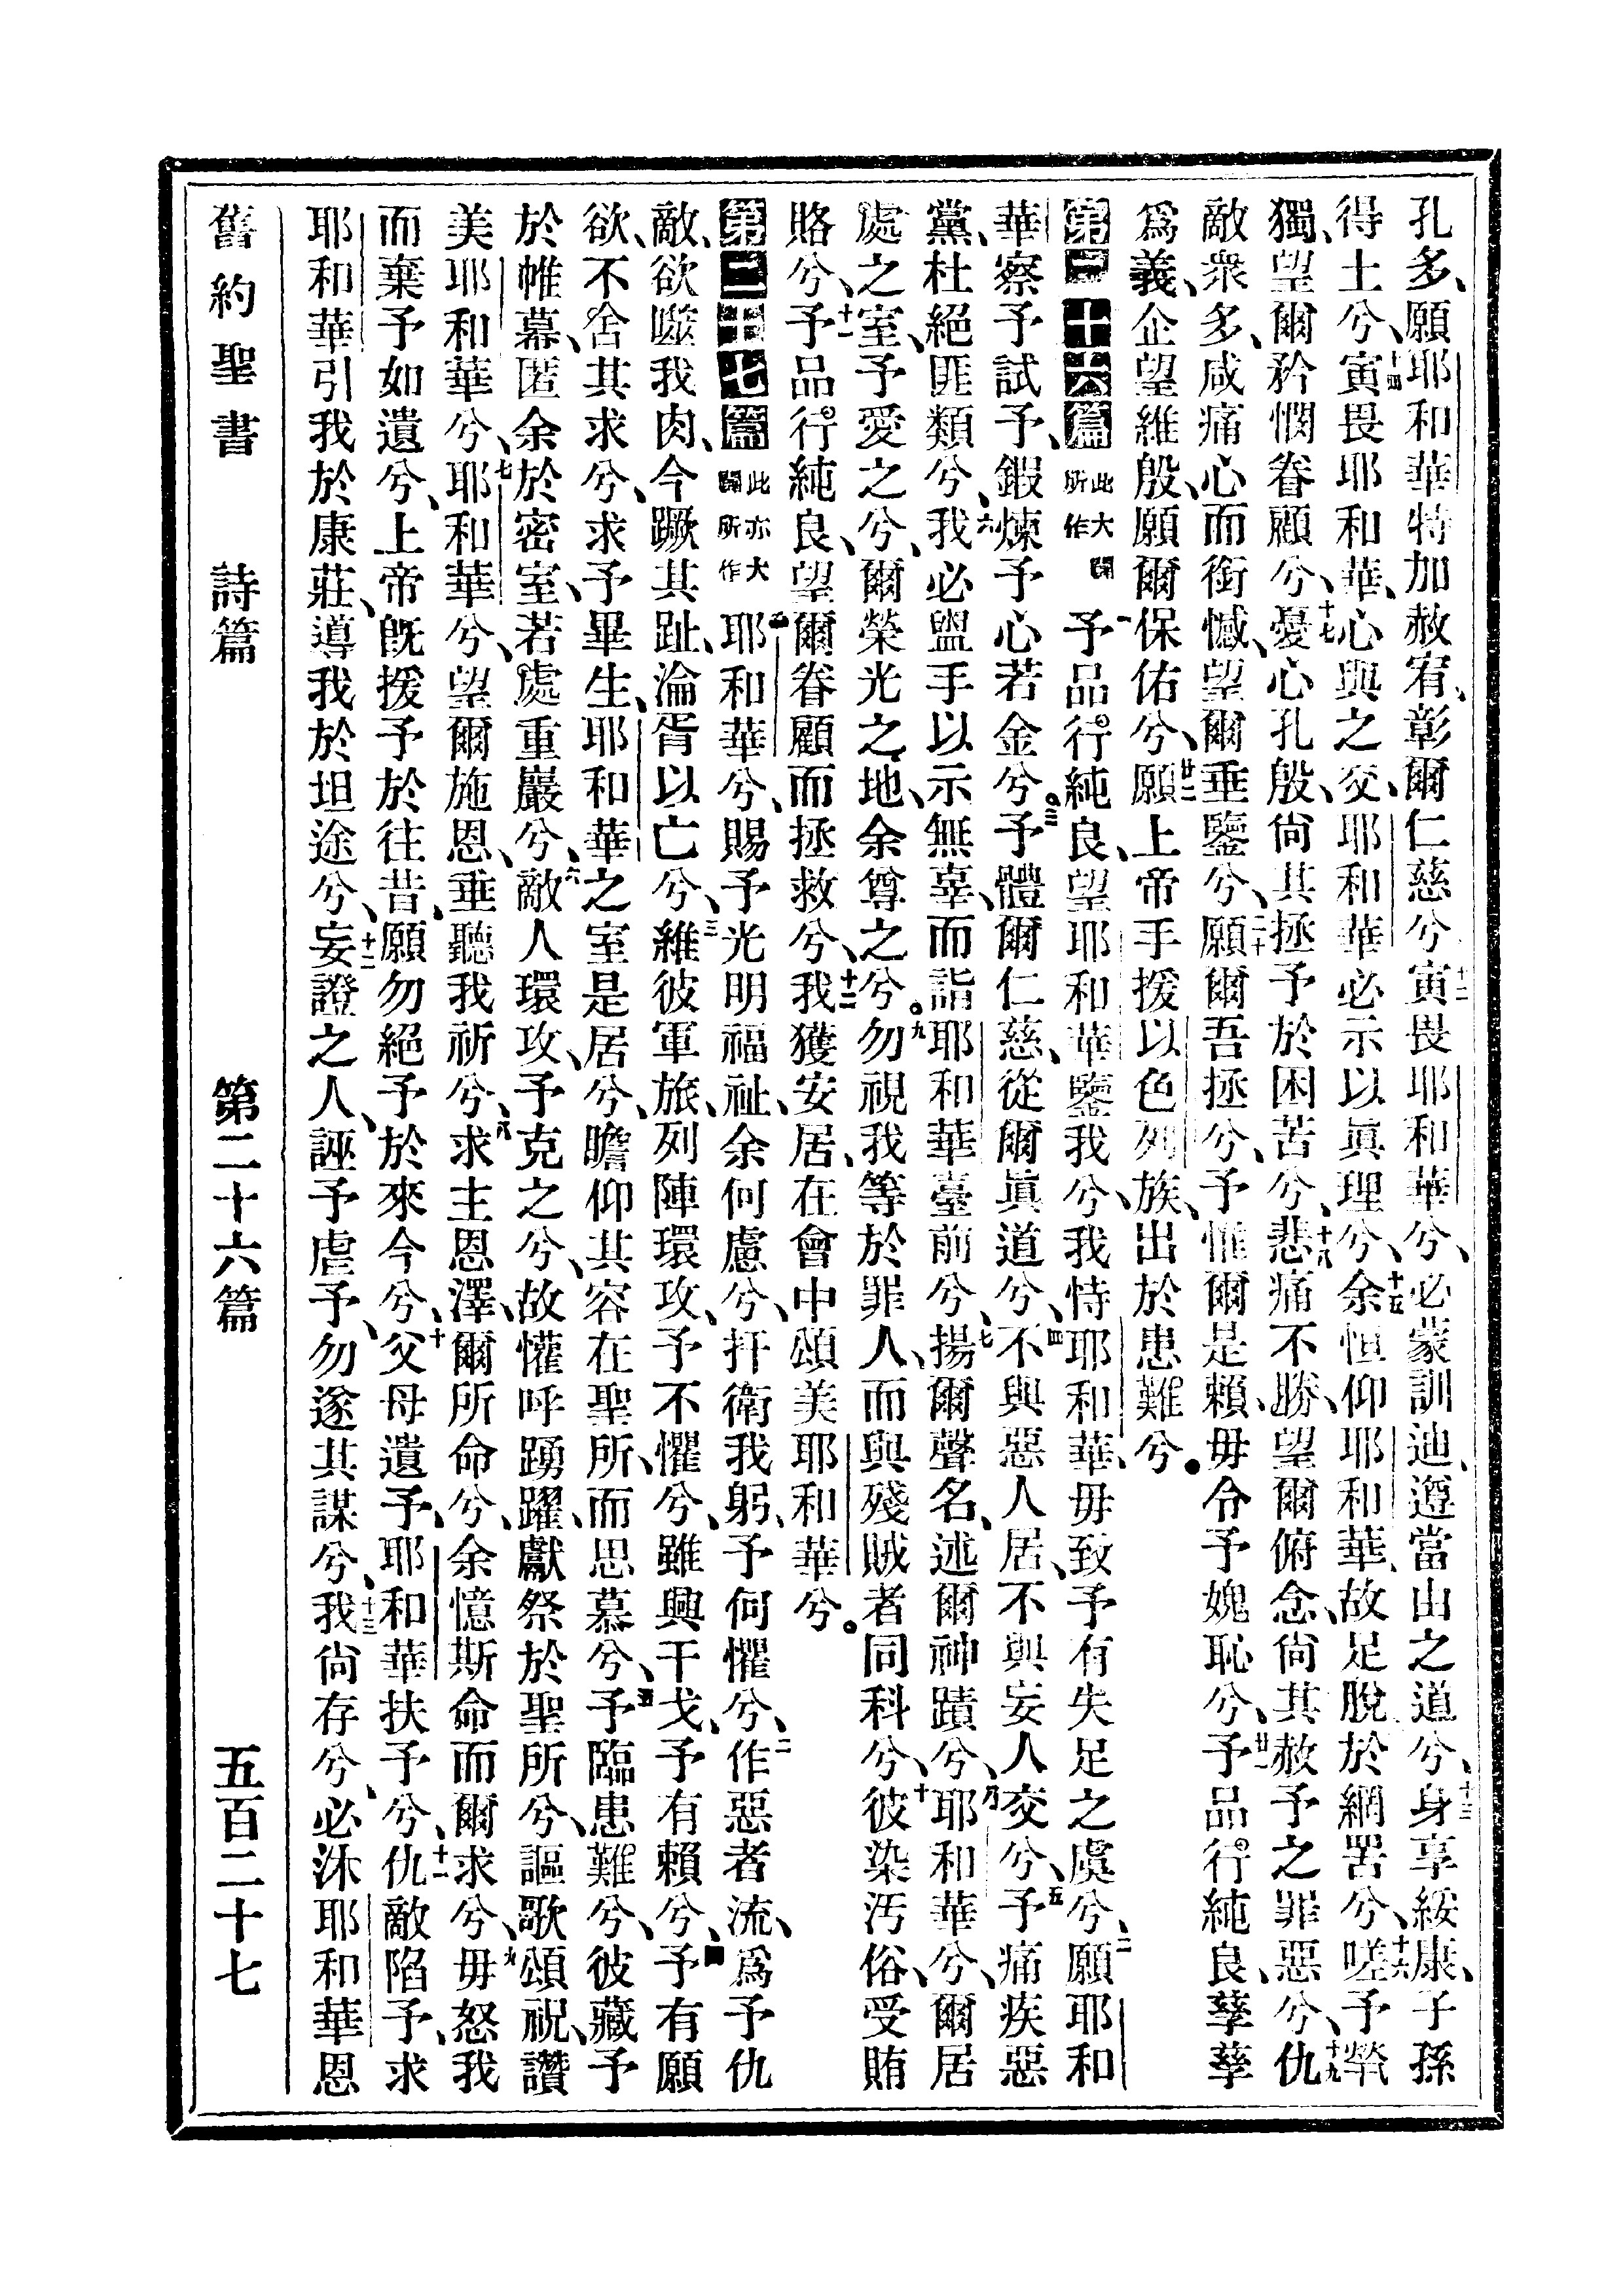 孔多、願耶和華特加赦宥、彰爾仁慈兮、十二寅畏耶和華兮、必蒙訓迪、遵當由之道兮、十三身享綏康、子孫
得土兮、十四寅畏耶和華、心與之交、耶和華必示以眞理兮、十五余恒仰耶和華、故足脫於網罟兮、十六嗟予煢
獨、望爾矜憫眷顧兮、十七憂心孔殷、尙其拯予於困苦兮、十八悲痛不勝、望爾俯念、尙其赦予之罪惡兮、十九仇
敵衆多、咸痛心而銜憾、望爾垂鑒兮、二十願爾吾拯兮、予惟爾是賴、毋令予媿恥兮、廿一予品行純良、孳孳
爲義、企望維殷、願爾保佑兮、廿二願上帝手援以色列族、出於患難兮。
第二十六篇 此大闢所作 一予品行純良、望耶和華鑒我兮、我恃耶和華、毋致予有失足之虞兮、二願耶和
華察予試予、鍜煉予心若金兮。三予體爾仁慈、從爾眞道兮、四不與惡人居、不與妄人交兮、五予痛疾惡
黨、杜絕匪類兮、六我必盥手以示無辜、而詣耶和華臺前兮、七揚爾聲名、述爾神蹟兮、八耶和華兮、爾居
處之室、予愛之兮、爾榮光之地、余尊之兮。九勿視我等於罪人、而與殘賊者同科兮、十彼染汚俗、受賄
賂兮、十一予品行純良、望爾眷顧而拯救兮、十二我獲安居、在會中頌美耶和華兮。
第二十七篇 此亦大闢所作 一耶和華兮、賜予光明福祉、余何慮兮、扞衛我躬、予何懼兮、二作惡者流、爲予仇
敵、欲噬我肉、今蹶其趾、淪胥以亡兮、三維彼軍旅、列陣環攻、予不懼兮、雖興干戈、予有賴兮、四予有願
欲、不舍其求兮、求予畢生、耶和華之室是居兮、瞻仰其容在聖所、而思慕兮、五予臨患難兮、彼藏予
於帷幕、匿余於密室、若處重巖兮、六敵人環攻、予克之兮、故懽呼踴躍、獻祭於聖所兮、謳歌頌祝、讚
美耶和華兮、七耶和華兮、望爾施恩、垂聽我祈兮、八求主恩澤、爾所命兮、余憶斯命而爾求兮、九毋怒我
而棄予如遺兮、上帝旣援予於往昔、願勿絕予於來今兮、十父母遺予、耶和華扶予兮、十一仇敵陷予、求
耶和華引我於康莊、導我於坦途兮、十二妄證之人、誣予虐予、勿遂其謀兮、十三我尙存兮、必沐耶和華恩
舊約聖書 詩篇 第二十六篇 五百二十七